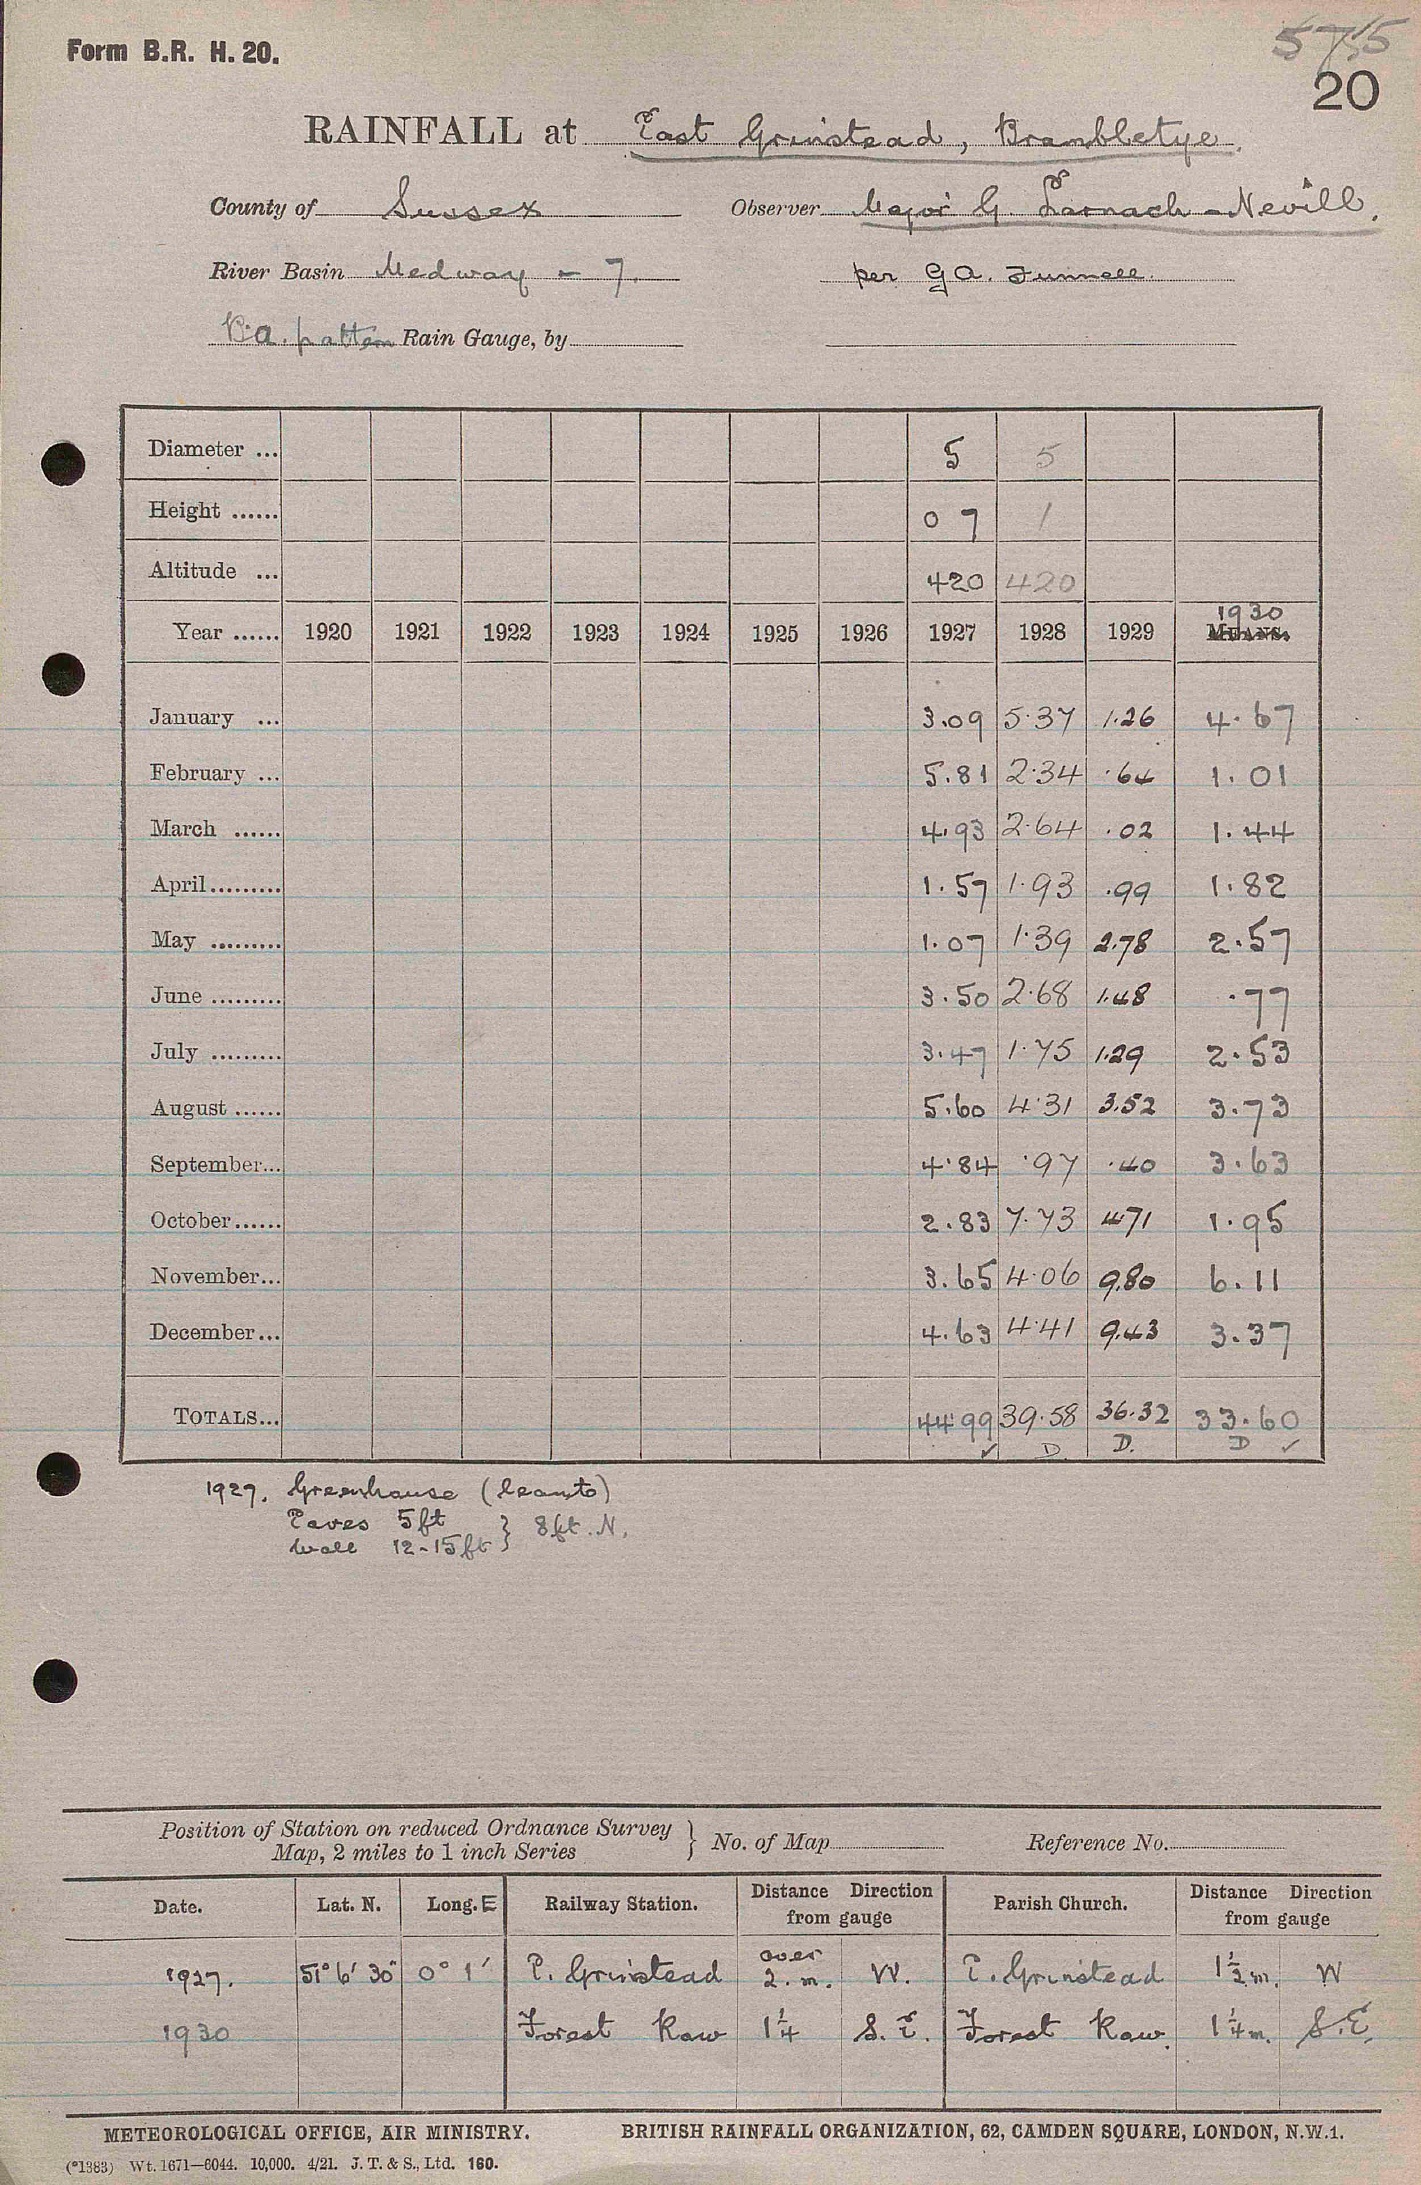 Form B.R. H. 20.
5755
20
RAINFALL at East Grinstead, Brambletye.
County of Sussex Observer Major G. Larnach-Nevill.
River Basin Medway - 7. per G A. Funnell.
B.a. pattern Rain Gauge, by
Diameter ... 5 5
Height ...... 0 7 1
Altitude ... 420 420
1930
Year ...... 1920 1921 1922 1923 1924 1925 1926 1927 1928 1929 MEANS.
January ... 3.09 5.37 1.26 4.67
February ... 5.81 2.34 .64 1.01
March ...... 4.93 2.64 .02 1.44
April......... 1.57 1.93 .99 1.82
May ......... 1.07 1.39 2.78 2.57
June ......... 3.50 2.68 1.48 .77
July ......... 3.47 1.75 1.29 2.53
August ...... 5.60 4.31 3.52 3.73
September... 4.84 .97 .40 3.63
October...... 2.83 7.73 4.71 1.95
November... 3.65 4.06 9.80 6.11
December... 4.63 4.41 9.43 3.37
TOTALS... 44.99 39.58 36.32 33.60
✓ D D. D ✓
1927. Greenhouse (leanto)
Eaves 5ft } 8ft. N.
Wall 12-15ft
Position of Station on reduced Ordnance Survey
Map, 2 miles to 1 inch Series } No. of Map Reference No.
Date. Lat. N. Long. E Railway Station. Distance Direction from gauge Parish Church. Distance Direction from gauge
1927. 51° 6' 30" 0° 1' E. Grinstead over 2. m. W. E. Grinstead 1½ m. W
1930 Forest Row 1¼ S. E. Forest Row. 1¼ m. S.E.
METEOROLOGICAL OFFICE, AIR MINISTRY. BRITISH RAINFALL ORGANIZATION, 62, CAMDEN SQUARE, LONDON, N.W.1.
(*1383) Wt. 1671—6044. 10,000. 4/21. J. T. & S., Ltd. 160.